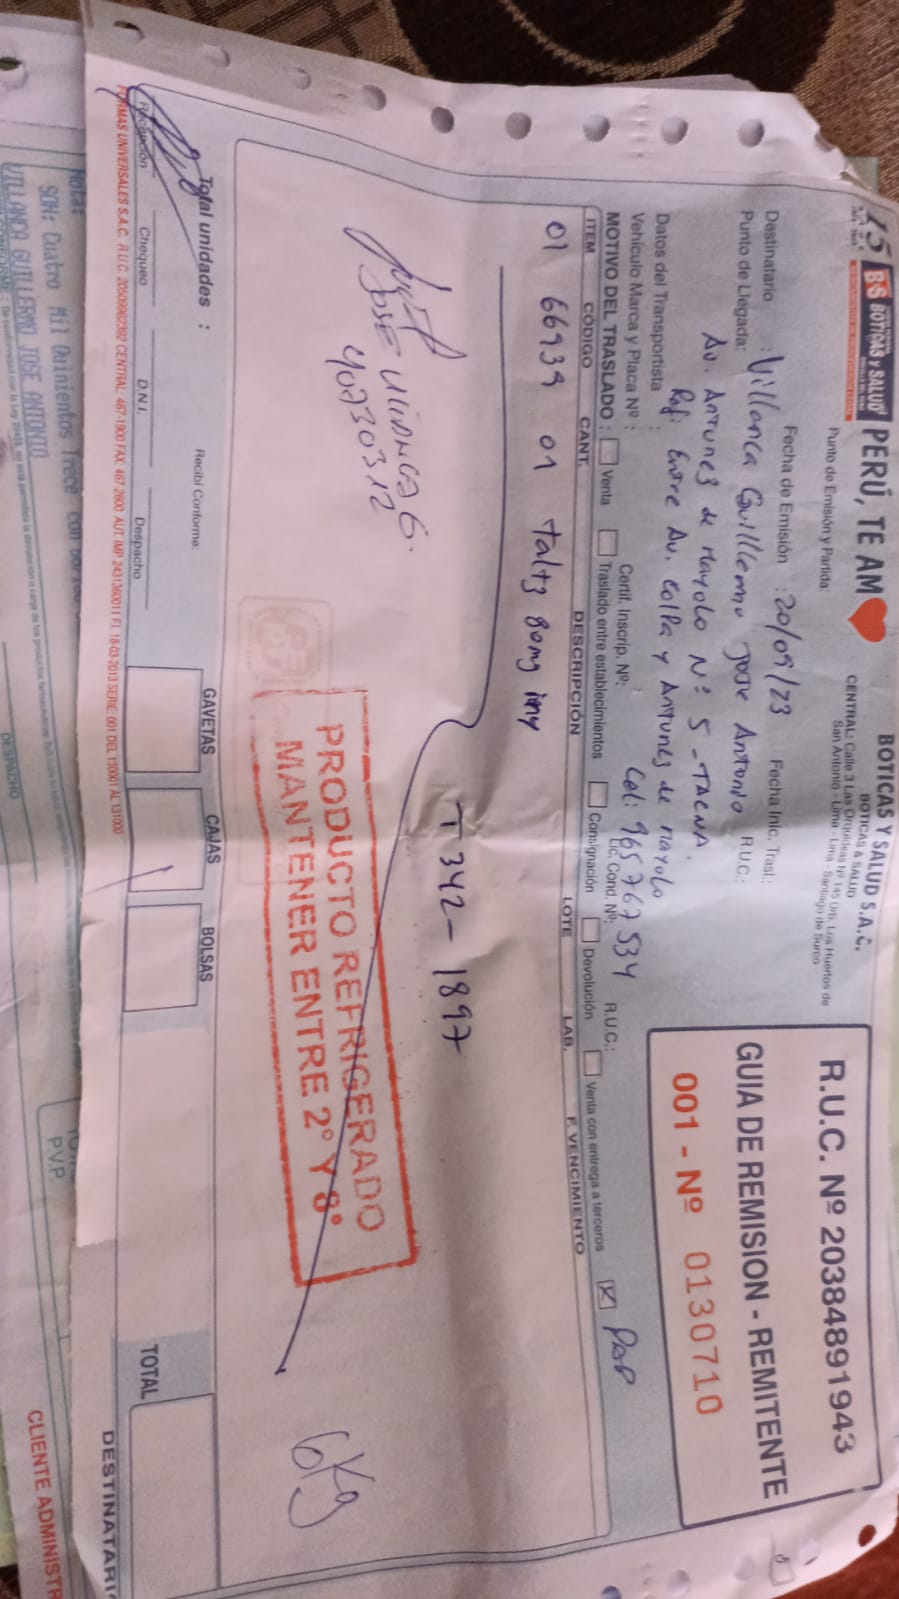 15
B·S BOTICAS y SALUD PERÚ, TE AM
BOTICAS Y SALUD S.A.C.
BOTICAS & SALUD
CENTRAL: Calle 3 Las Orquídeas Nº 145 Urb. Los Huertos de
San Antonio - Lima - Lima - Santiago de Surco
Punto de Emisión y Partida:
R.U.C. Nº 20384891943
GUIA DE REMISION - REMITENTE
001 - Nº 0130710
Fecha de Emisión : 20/09/23 Fecha Inic. Trasl:
Destinatario : Villanca Guillermo Jose Antonio R.U.C.:
Punto de Llegada: Av. Antunes de Mayolo Nº 5 - TACNA.
Ref: Entre Av. Colpa y Antunes de Mayolo
Datos del Transportista : R.U.C.:
Cel: 965767534
Vehículo Marca y Placa Nº : Certif. Inscrip. Nº: Lic. Cond. Nº:
MOTIVO DEL TRASLADO : Venta Traslado entre establecimientos Consignación Devolución Venta con entrega a terceros X PAP
ITEM CÓDIGO CANT. DESCRIPCIÓN LOTE LAB. F. VENCIMIENTO
01 66939 01 Taltz 80mg iny
T 342 - 1897
JOSE
40730312
PRODUCTO REFRIGERADO
MANTENER ENTRE 2° Y 8°
6Kg
Total unidades :
Recibí Conforme:
GAVETAS CAJAS BOLSAS
TOTAL
Recepción Chequeo D.N.I. Despacho
FORMAS UNIVERSALES S.A.C. R.U.C. 20509962392 CENTRAL 467-1900 FAX 467-2600 AUT. IMP 2431360011 F.I. 18-03-2013 SERIE: 001 DEL 130001 AL 131000
DESTINATARIO
Nota:
SON: Cuatro Mil Quinientos Trece con
P.V.P.
VILLANCA GUILLERMO JOSE ANTONIO
DESPACHO
CLIENTE ADMINISTR